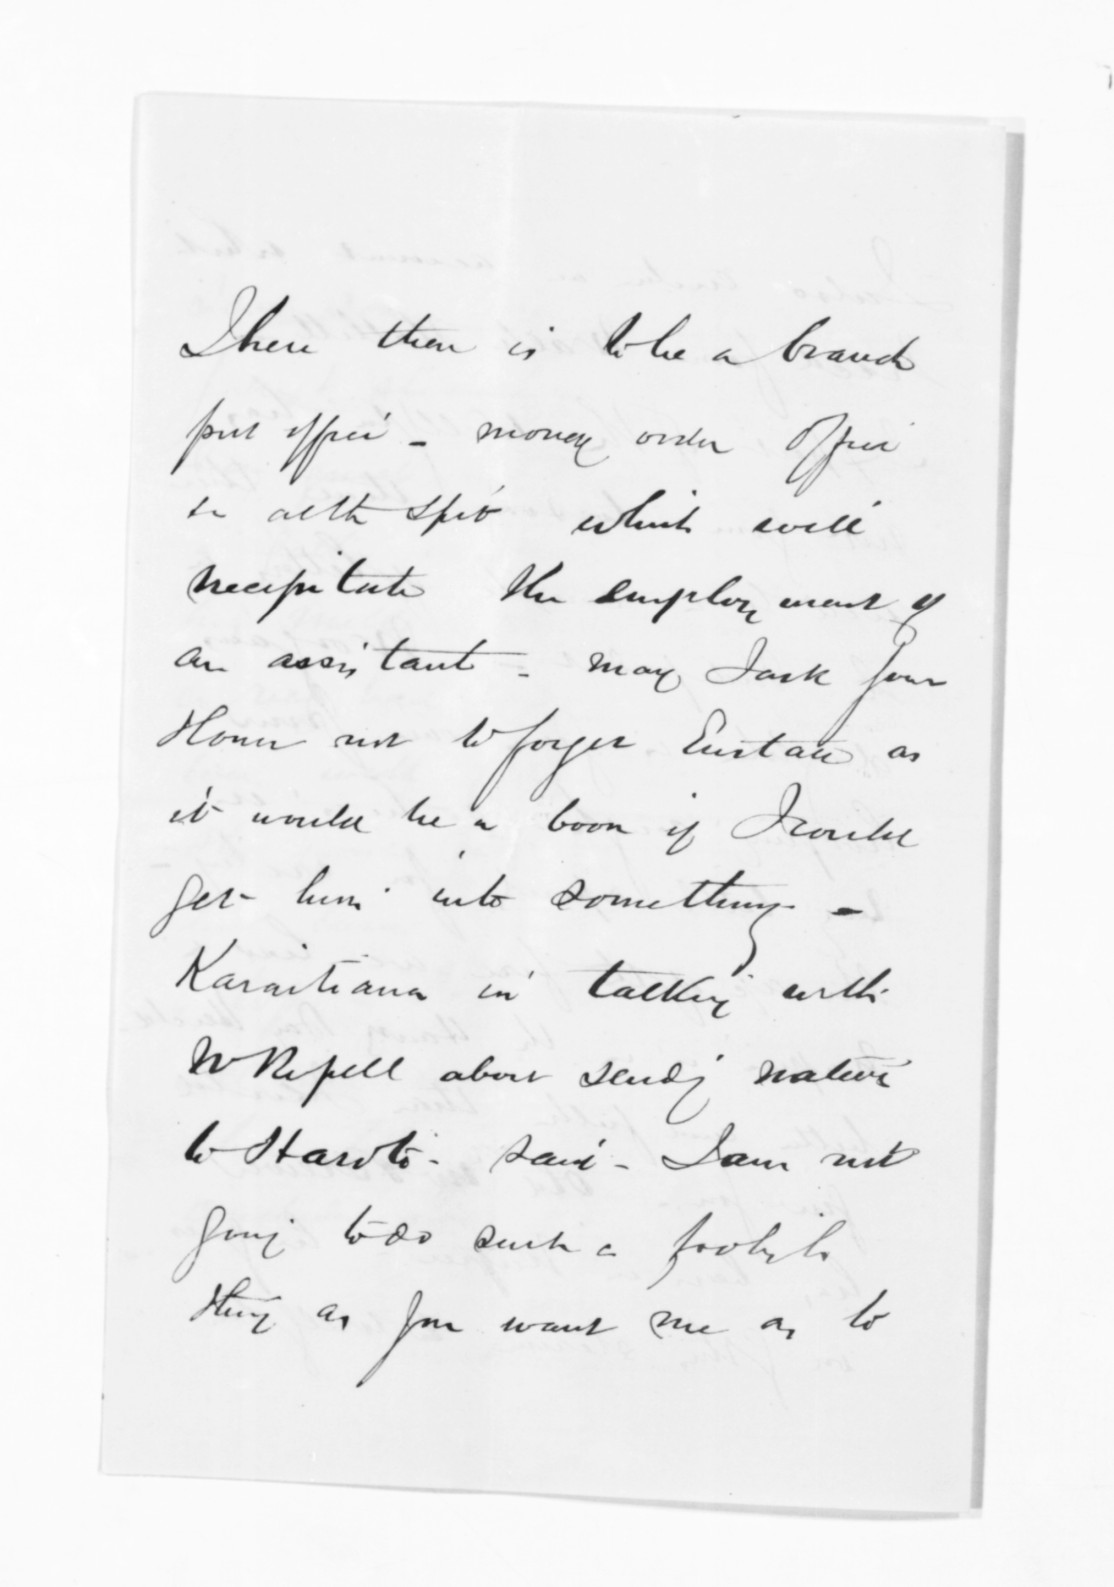 I hear there is to be a branch
post office - money order office
&c at the Spit which will
necessitate the employment of
an assistant - may I ask your
Honor not to forget Eustace as
it would be a boon if I could
get him into something -
Karaitiana in talking with
Mr
about sendg natives
to said - I am not
going to do such a foolish
thing as you want me as to